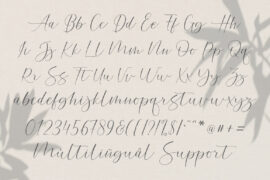 Aa Bb Cc Dd Ee Ff Gg Hh
Ii Jj Kk Ll Mm Nn Oo Pp Qq
Rr Ss Tt Uu Vv Ww Xx Yy Zz
abcdefghijklmnopqrstuvwxyz
0123456789&(!?)$@#+=
Multilingual Support